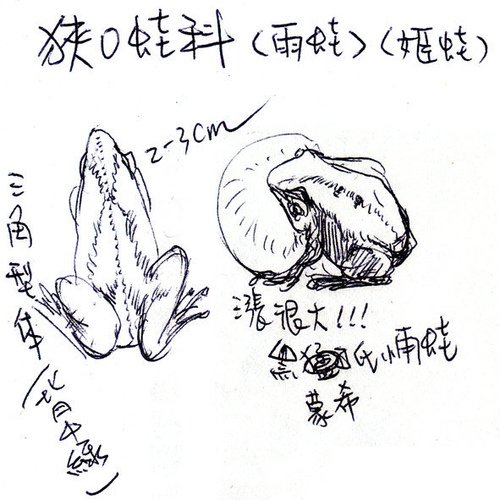 狹口蛙科（雨蛙）（姬蛙）
2-3cm
三角型体（背中線）
漲很大!!!
黑 氏小雨蛙
蒙希